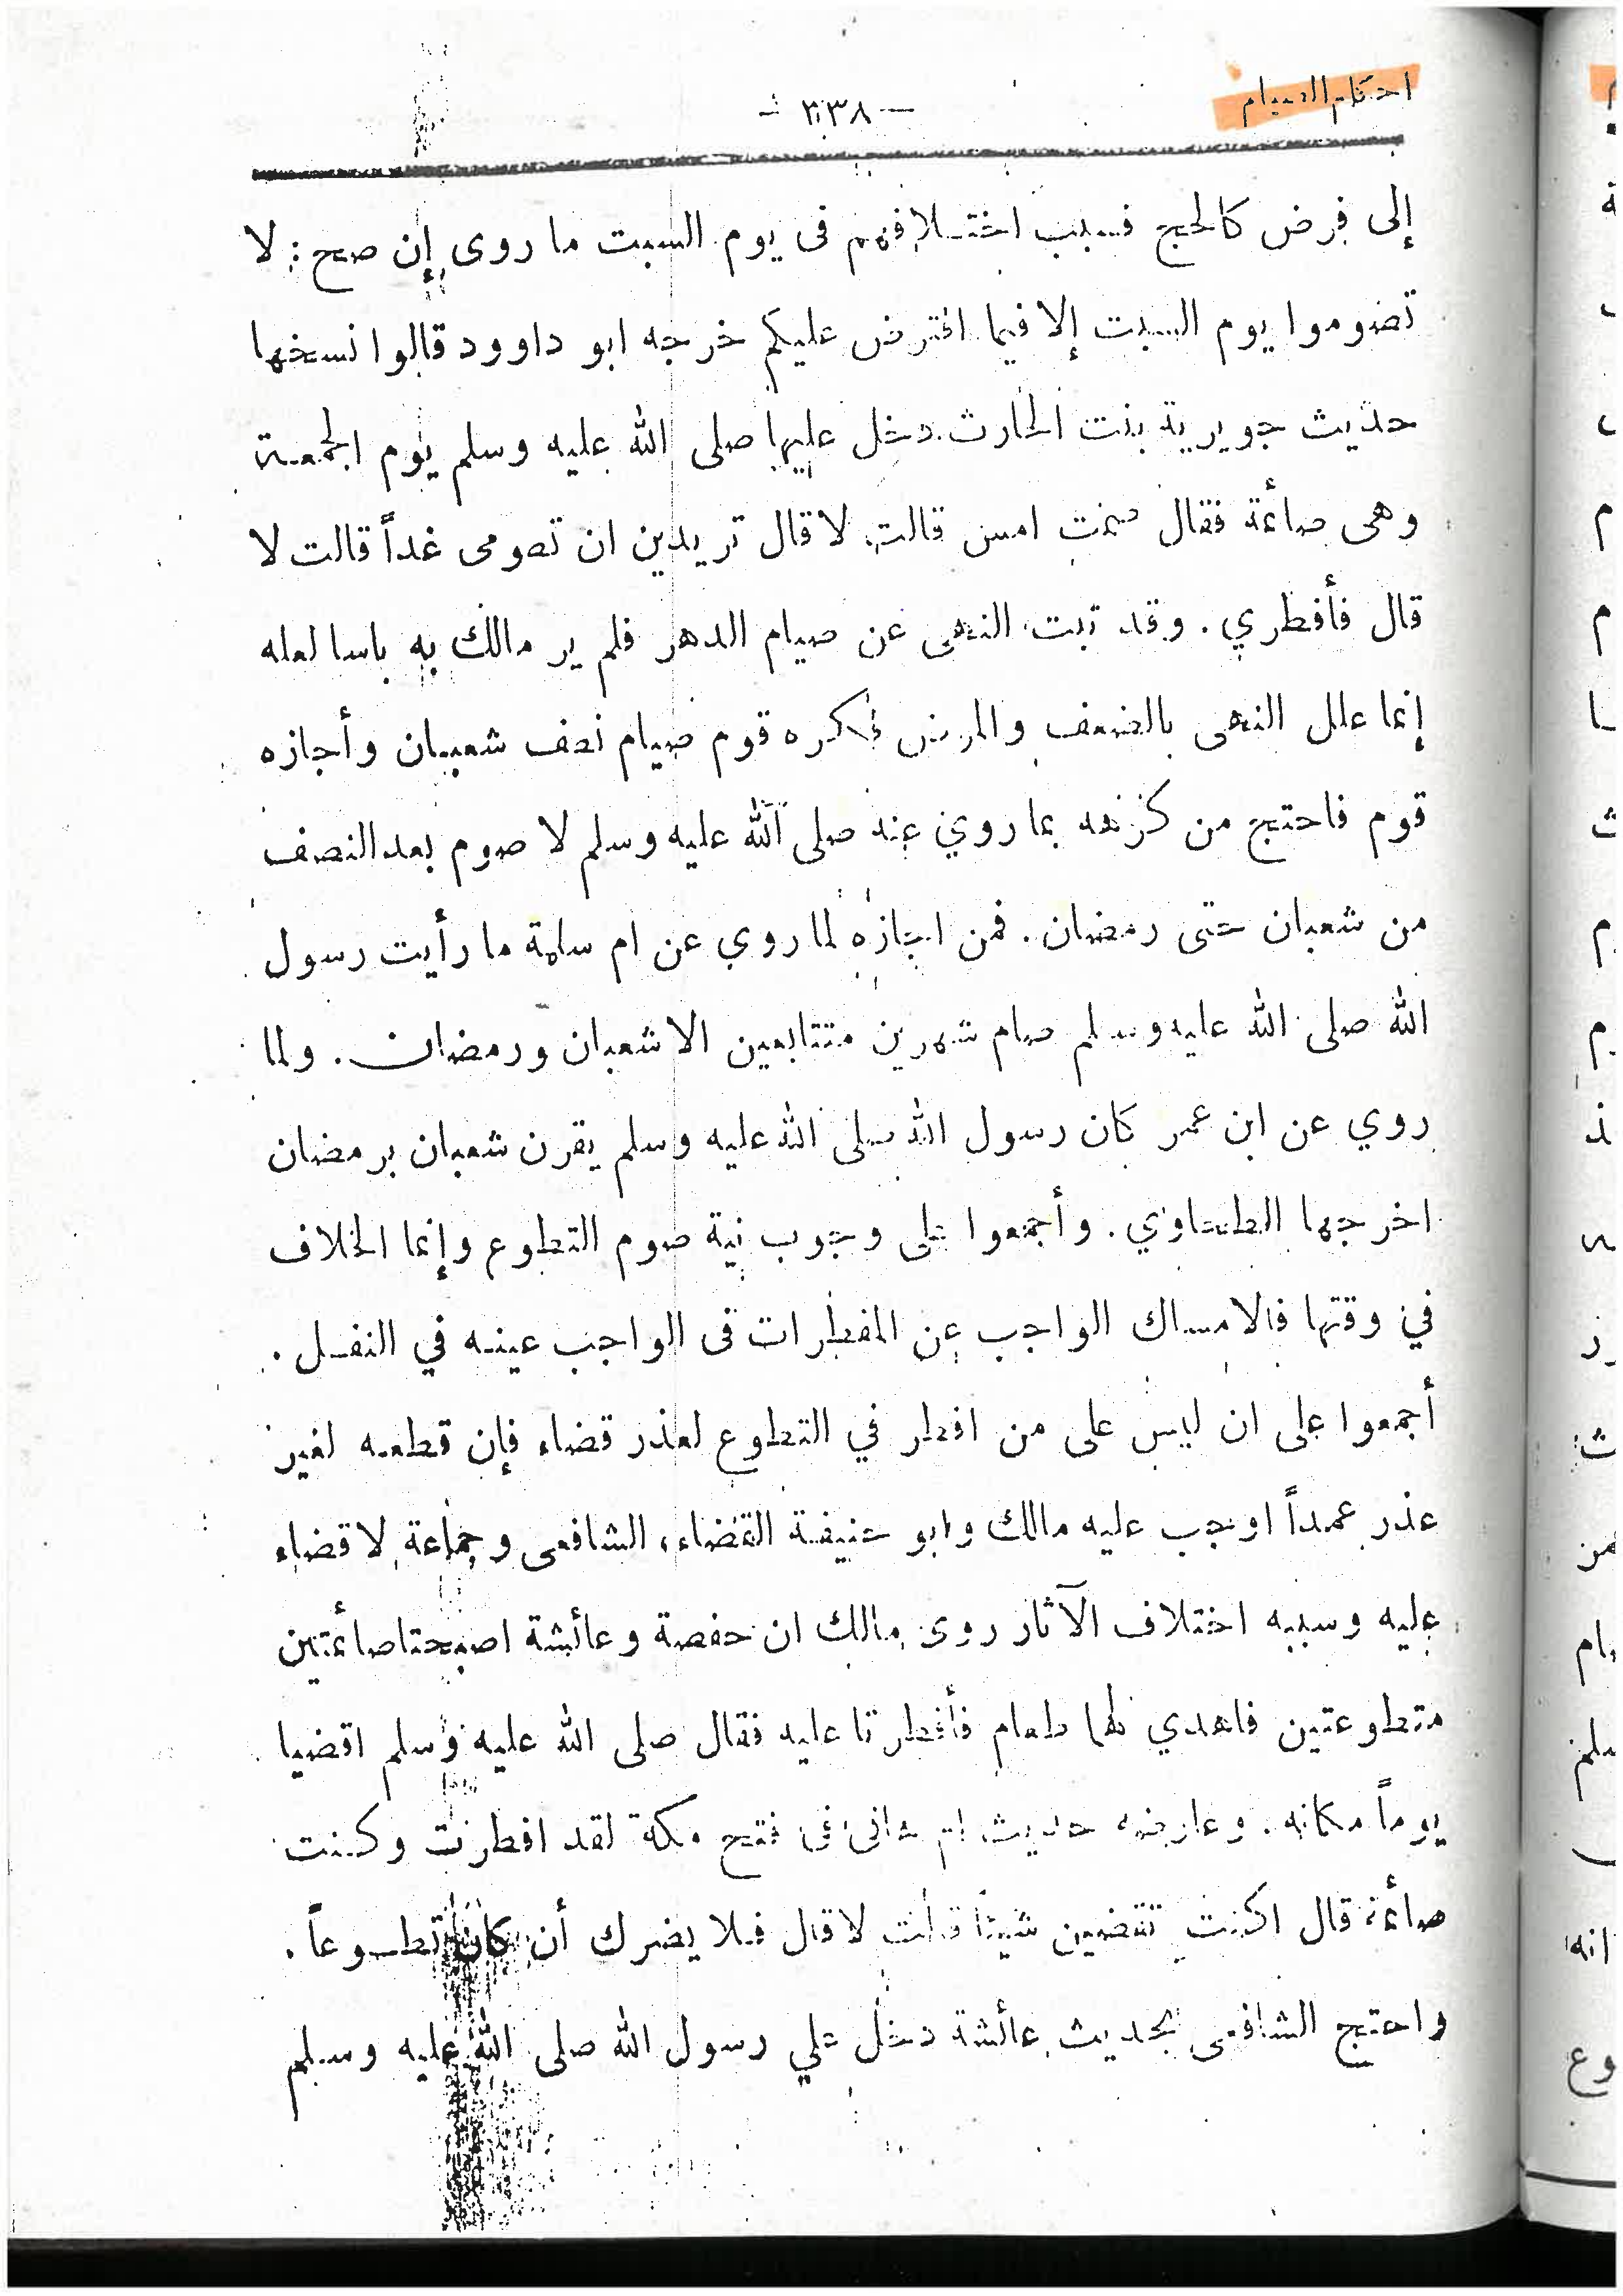 احكام الصيام
— ٣٣٨ —
إلى فرض كالحج فسبب اختلافهم فى يوم السبت ما روى إن صح : لا
تصوموا يوم السبت إلا فيما افترض عليكم خرجه ابو داوود قالوا نسخها
حديث جويرية بنت الحارث دخل عليها صلى الله عليه وسلم يوم الجمعة
وهى صائمة فقال صمت امس قالت لا قال تريدين ان تصومى غداً قالت لا
قال فأفطري . وقد ثبت النهى عن صيام الدهر فلم ير مالك به باسا لعله
إنما علل النهى بالضعف والمرض كره قوم صيام نصف شعبان وأجازه
قوم فاحتج من كرهه بما روي عنه صلى الله عليه وسلم لا صوم بعد النصف
من شعبان حتى رمضان . فمن اجازه لما روي عن ام سلمة ما رأيت رسول
الله صلى الله عليه وسلم صام شهرين متتابعين الا شعبان ورمضان . ولما
روي عن ابن عمر كان رسول الله صلى الله عليه وسلم يقرن شعبان برمضان
اخرجها الطحاوي . وأجمعوا على وجوب نية صوم التطوع وإنما الخلاف
في وقتها فالامساك الواجب عن المفطرات فى الواجب عينه في النفل .
أجمعوا على ان ليس على من افطر في التطوع لعذر قضاء فإن قطعه لغير
عذر عمداً اوجب عليه مالك وابو حنيفة القضاء، الشافعى وجماعة لا قضاء
عليه وسببه اختلاف الآثار روى مالك ان حفصة وعائشة اصبحتا صائمتين
متطوعتين فاهدي لهما طعام فأفطرتا عليه فقال صلى الله عليه وسلم اقضيا
يوماً مكانه . وعارضه حديث ام هانى فى فتح مكة لقد افطرت وكنت
صائمة قال اكنت تقضين شيئا قالت لا قال فلا يضرك أن كان تطوعاً .
واحتج الشافعى بحديث عائشة دخل علي رسول الله صلى الله عليه وسلم